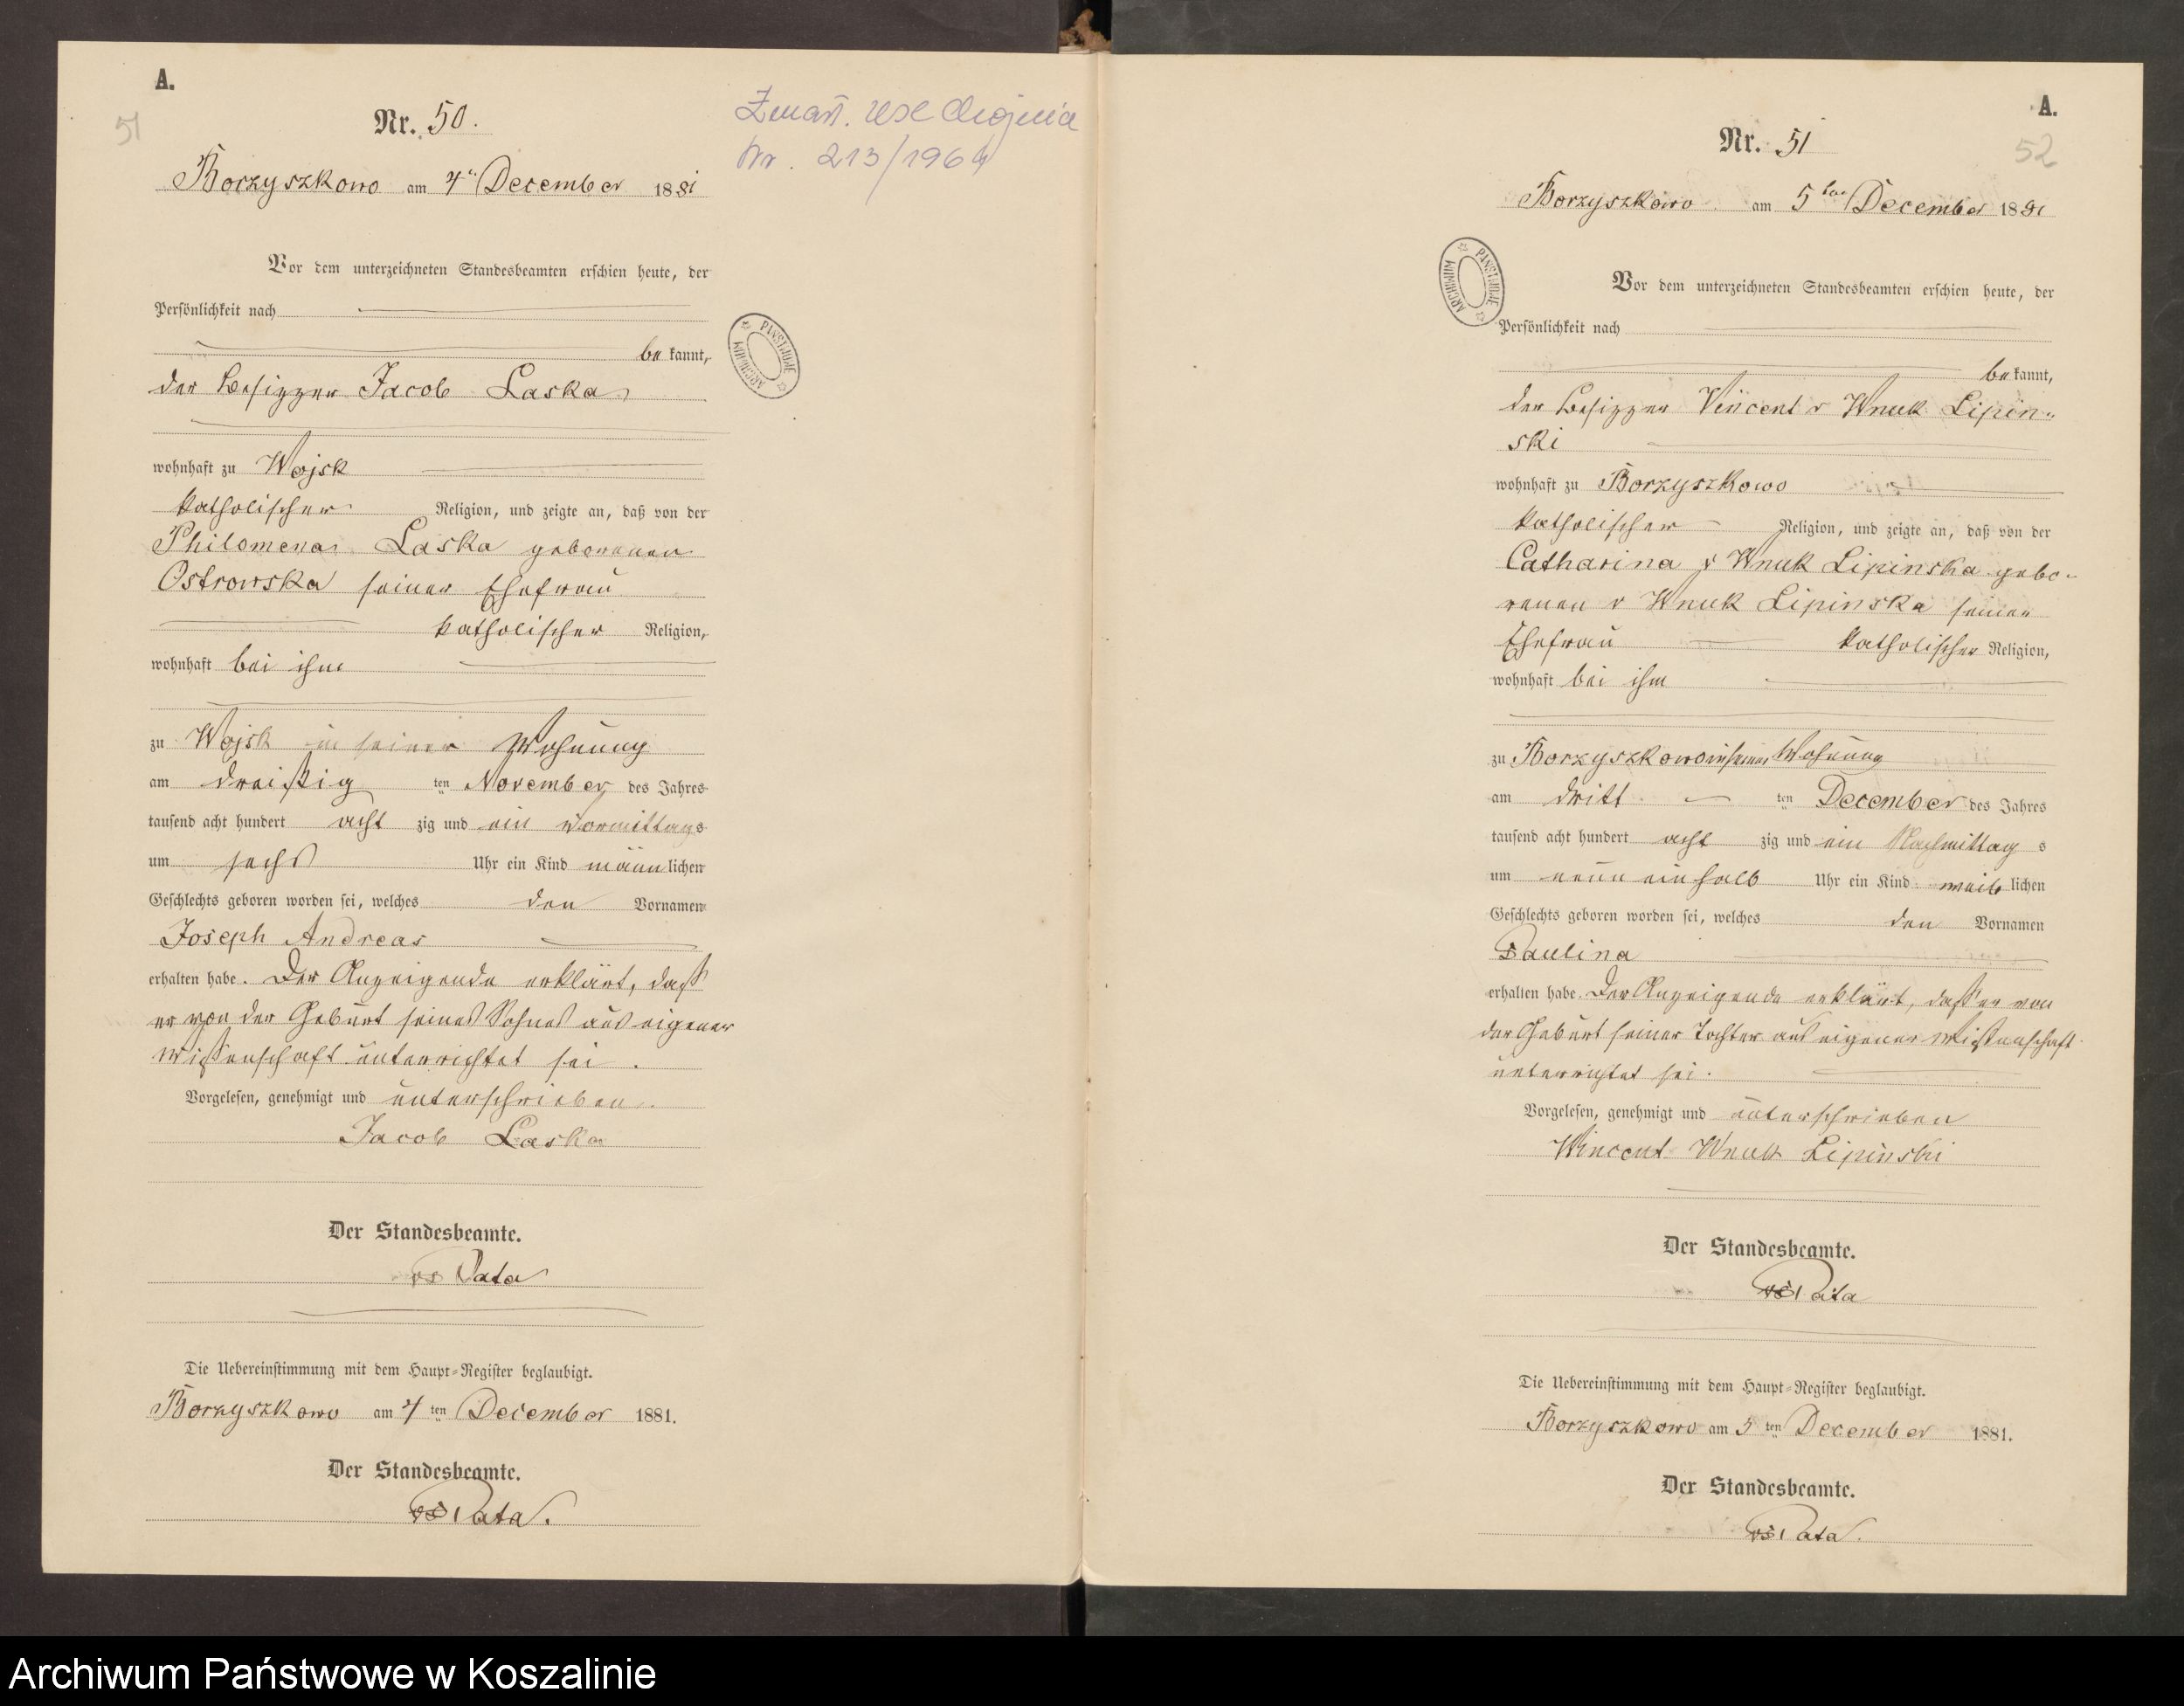 A.
51
Nr. 50.
Borzyszkowo am 4ten December 1881
Vor dem unterzeichneten Standesbeamten erschien heute, der
Persönlichkeit nach
be kannt,
der Besitzer Jacob Laska
wohnhaft zu Wojsk
katholischer Religion, und zeigte an, daß von der
Philomena Laska geborenen
Ostrowska seiner Ehefrau
katholischer Religion,
wohnhaft bei ihm
zu Wojsk in seiner Wohnung
am dreißig ten November des Jahres
tausend acht hundert acht zig und ein vormittags
um sechs Uhr ein Kind männ lichen
Geschlechts geboren worden sei, welches den Vornamen
Joseph Andreas
erhalten habe. Der Anzeigende erklärt, daß
er von der Geburt seines Sohnes aus eigener
Wissenschaft unterrichtet sei.
Vorgelesen, genehmigt und unterschrieben.
Jacob Laska
Der Standesbeamte.
Pata
Die Uebereinstimmung mit dem Haupt-Register beglaubigt.
Borzyszkowo am 4 ten December 1881.
Der Standesbeamte.
Pata.
Nr. 213/1964
ARCHIWUM PAŃSTWOWE
A.
52
Nr. 51
Borzyszkowo am 5ten December 1881
ARCHIWUM PAŃSTWOWE
Vor dem unterzeichneten Standesbeamten erschien heute, der
Persönlichkeit nach
be kannt,
der Besitzer Vincent v Wnuk Lipin-
ski
wohnhaft zu Borzyszkowo
katholischer Religion, und zeigte an, daß von der
Catharina v Wnuk Lipinska gebo-
renen v Wnuk Lipinska seiner
Ehefrau katholischer Religion,
wohnhaft bei ihm
zu Borzyszkowo in seiner Wohnung
am dritt ten December des Jahres
tausend acht hundert acht zig und ein Nachmittag s
um neun ein halb Uhr ein Kind weib lichen
Geschlechts geboren worden sei, welches den Vornamen
Paulina
erhalten habe. Der Anzeigende erklärt, daß er von
der Geburt seiner Tochter aus eigener Wissenschaft
unterrichtet sei.
Vorgelesen, genehmigt und unterschrieben
Wincent Wnuk Lipinski
Der Standesbeamte.
Pata
Die Uebereinstimmung mit dem Haupt-Register beglaubigt.
Borzyszkowo am 5 ten December 1881.
Der Standesbeamte.
Pata.
Archiwum Państwowe w Koszalinie